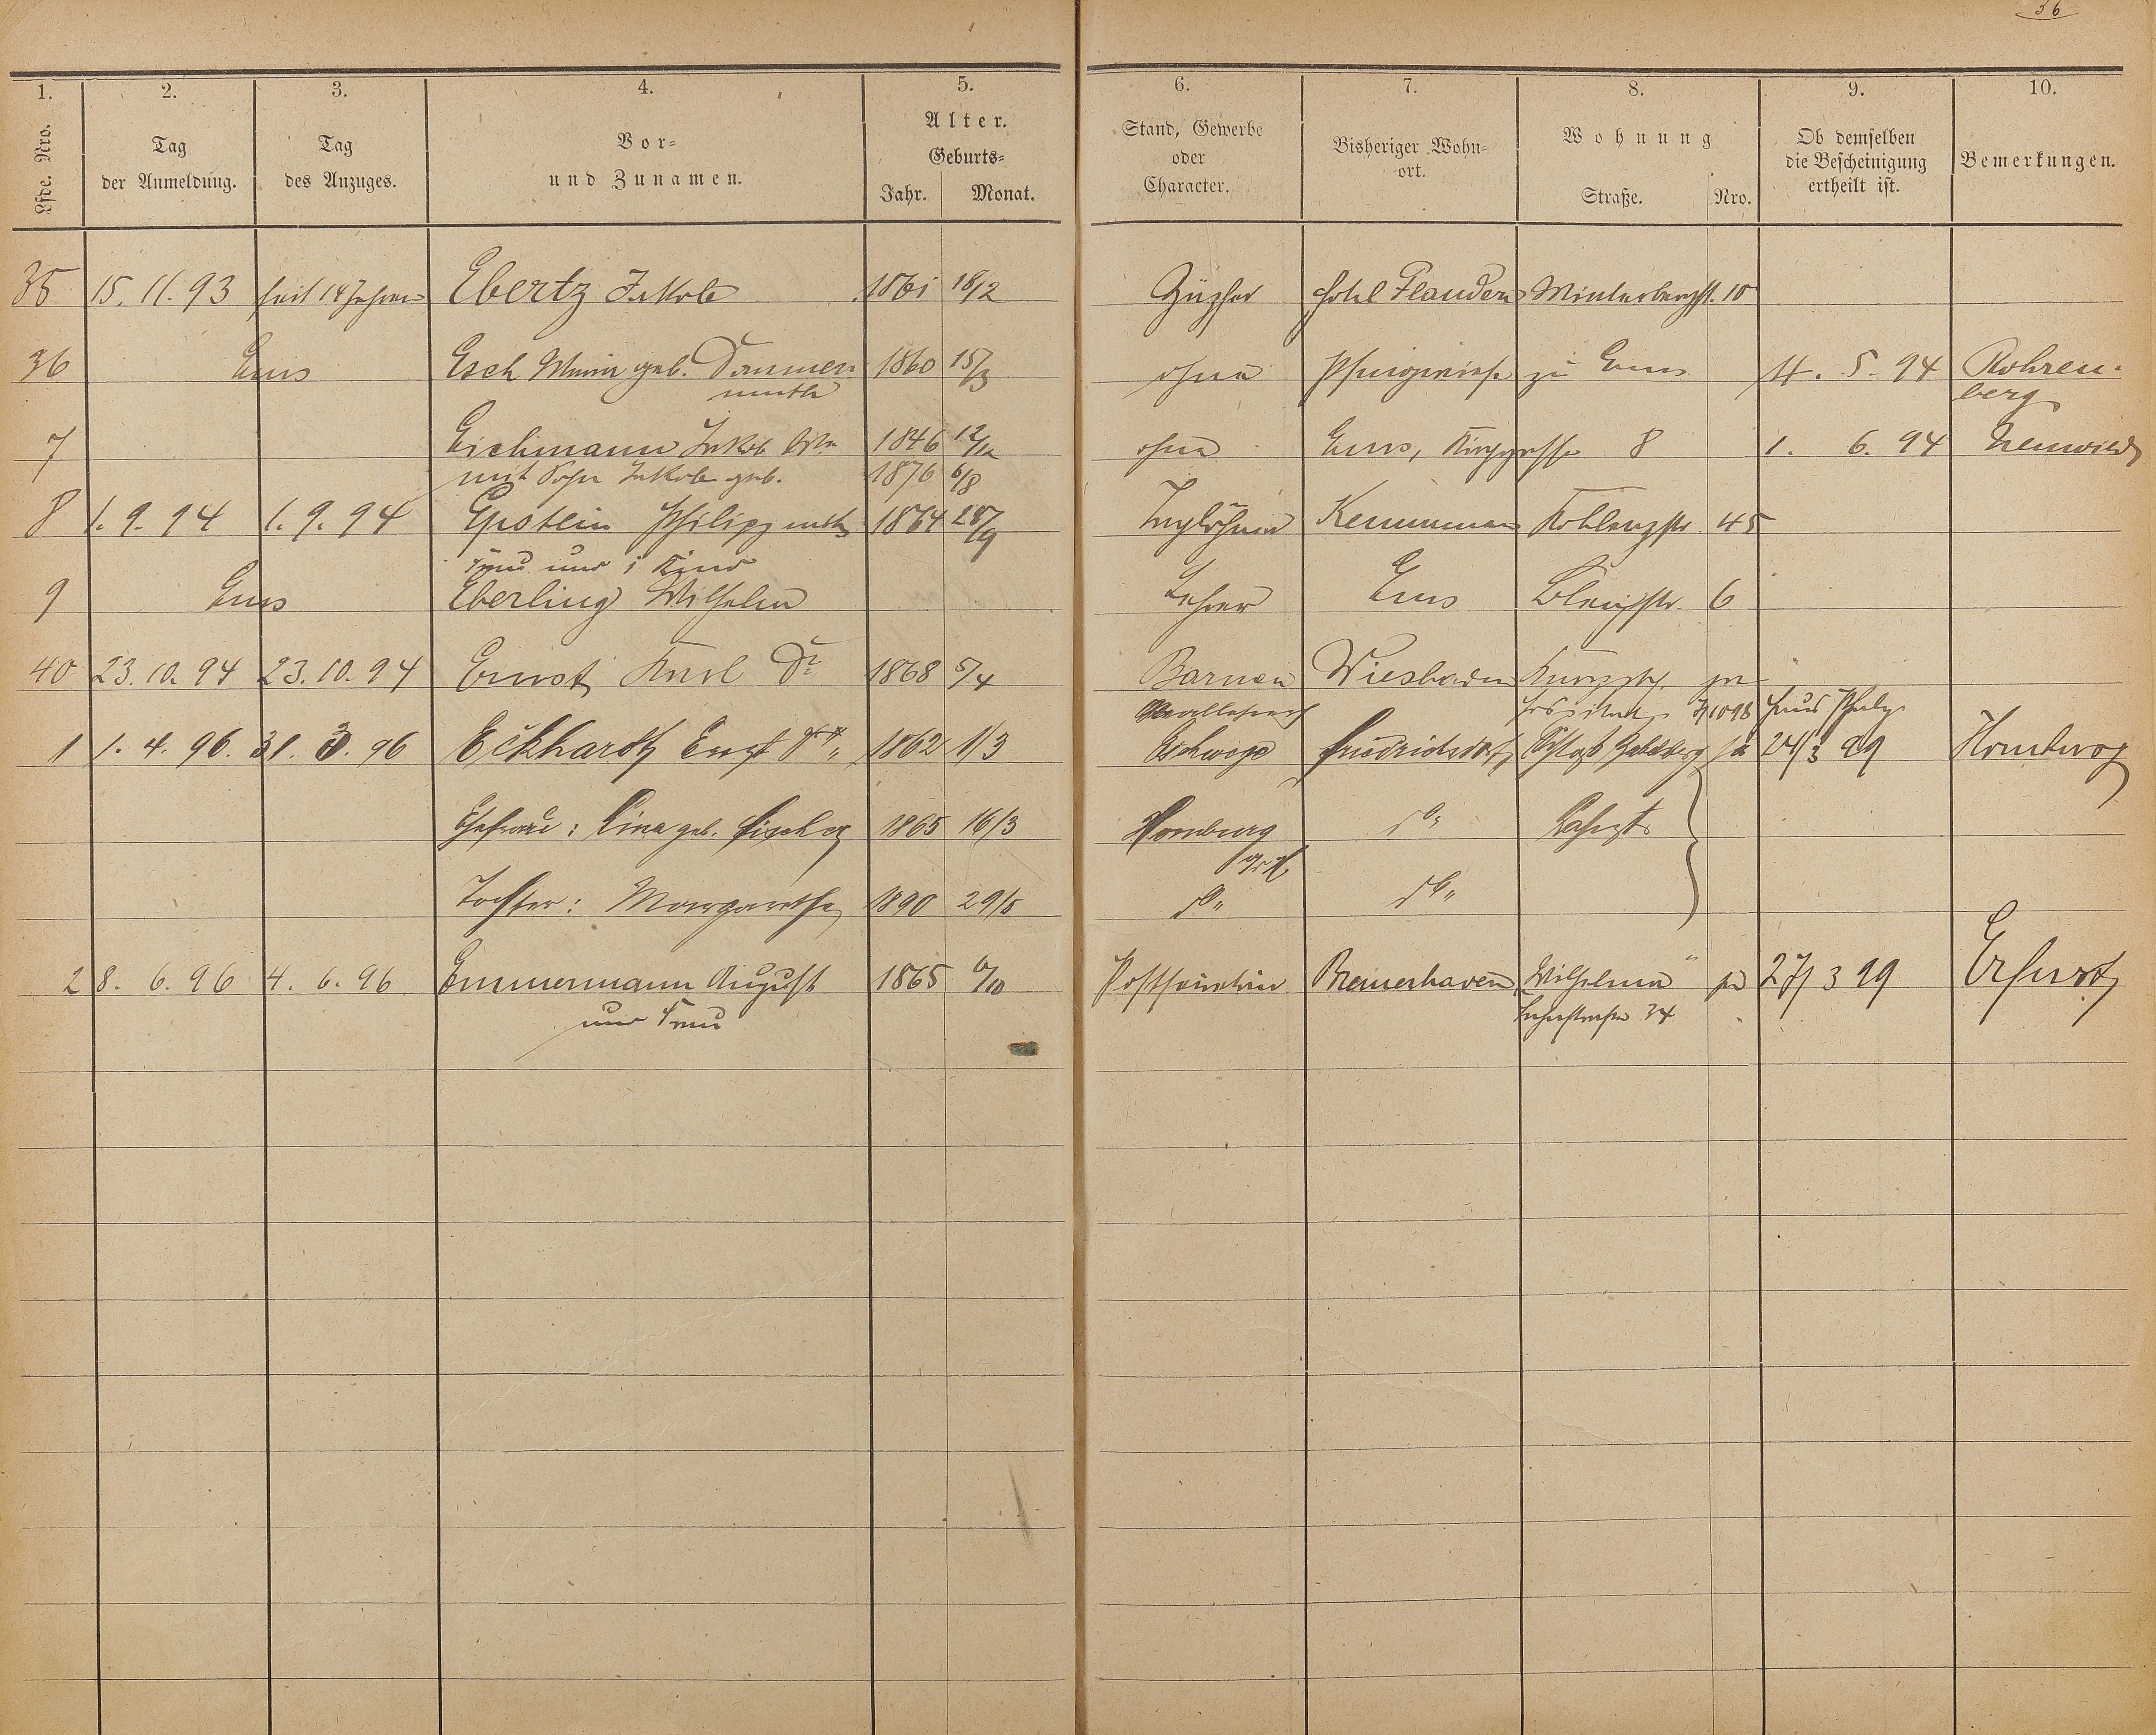 36
1. 2. 3. 4. 5. 6. 7. 8. 9. 10.
Lfde. Nro.
Tag
der Anmeldung.
Tag
des Anzuges.
Vor=
und Zunamen.
Alter.
Geburts=
Jahr. Monat.
Stand, Gewerbe
oder
Character.
Bisheriger Wohn=
ort.
Wohnung
Straße. Nro.
Ob demselben
die Bescheinigung
ertheilt ist.
Bemerkungen.
35 15. 11. 93 seit 14 Jahren Ebertz Jakob 1861 18/2 Hotel Flandern Winterbergstr. 10
36 Ems Esch geb. Dannen 1860 15/3 ohne zu Ems 4. 5. 94 Rohren-
muth berg
7 Eichmann Jakob 1846 12/12 ohne Ems, Kirchgasse 8 1. 6. 94 Neuwied
mit Sohn Jakob geb. 1876 6/8
8 1. 9. 94 1. 9. 94 Epstein Philipp mit 1864 28/9 Taglöhner Kemmenau Koblenzstr. 45
Frau und 1 Kind
9 Ems Eberling Wilhelm Lehrer Ems Bleichstr. 6
40 23. 10. 94 23. 10. 94 Ernst Karl Dr 1868 5/4 Barmen Wiesbaden
1 1. 4. 96. 31. 3. 96 Eckhardt Ernst 1862 1/3 Eschwege Friedrichsdorf ja 24/3 99 Homburg
Ehefrau: Lina geb. Fischer 1865 16/3 Homburg do Lahnstr
v. d. H.
Tochter: Margarethe 1890 29/5 do do
2 8. 6. 96 4. 6. 96 Emmermann August 1865 6/10 Bremerhaven Wilhelma ja 27/3 99 Erfurt
und Frau Lahnstraße 34